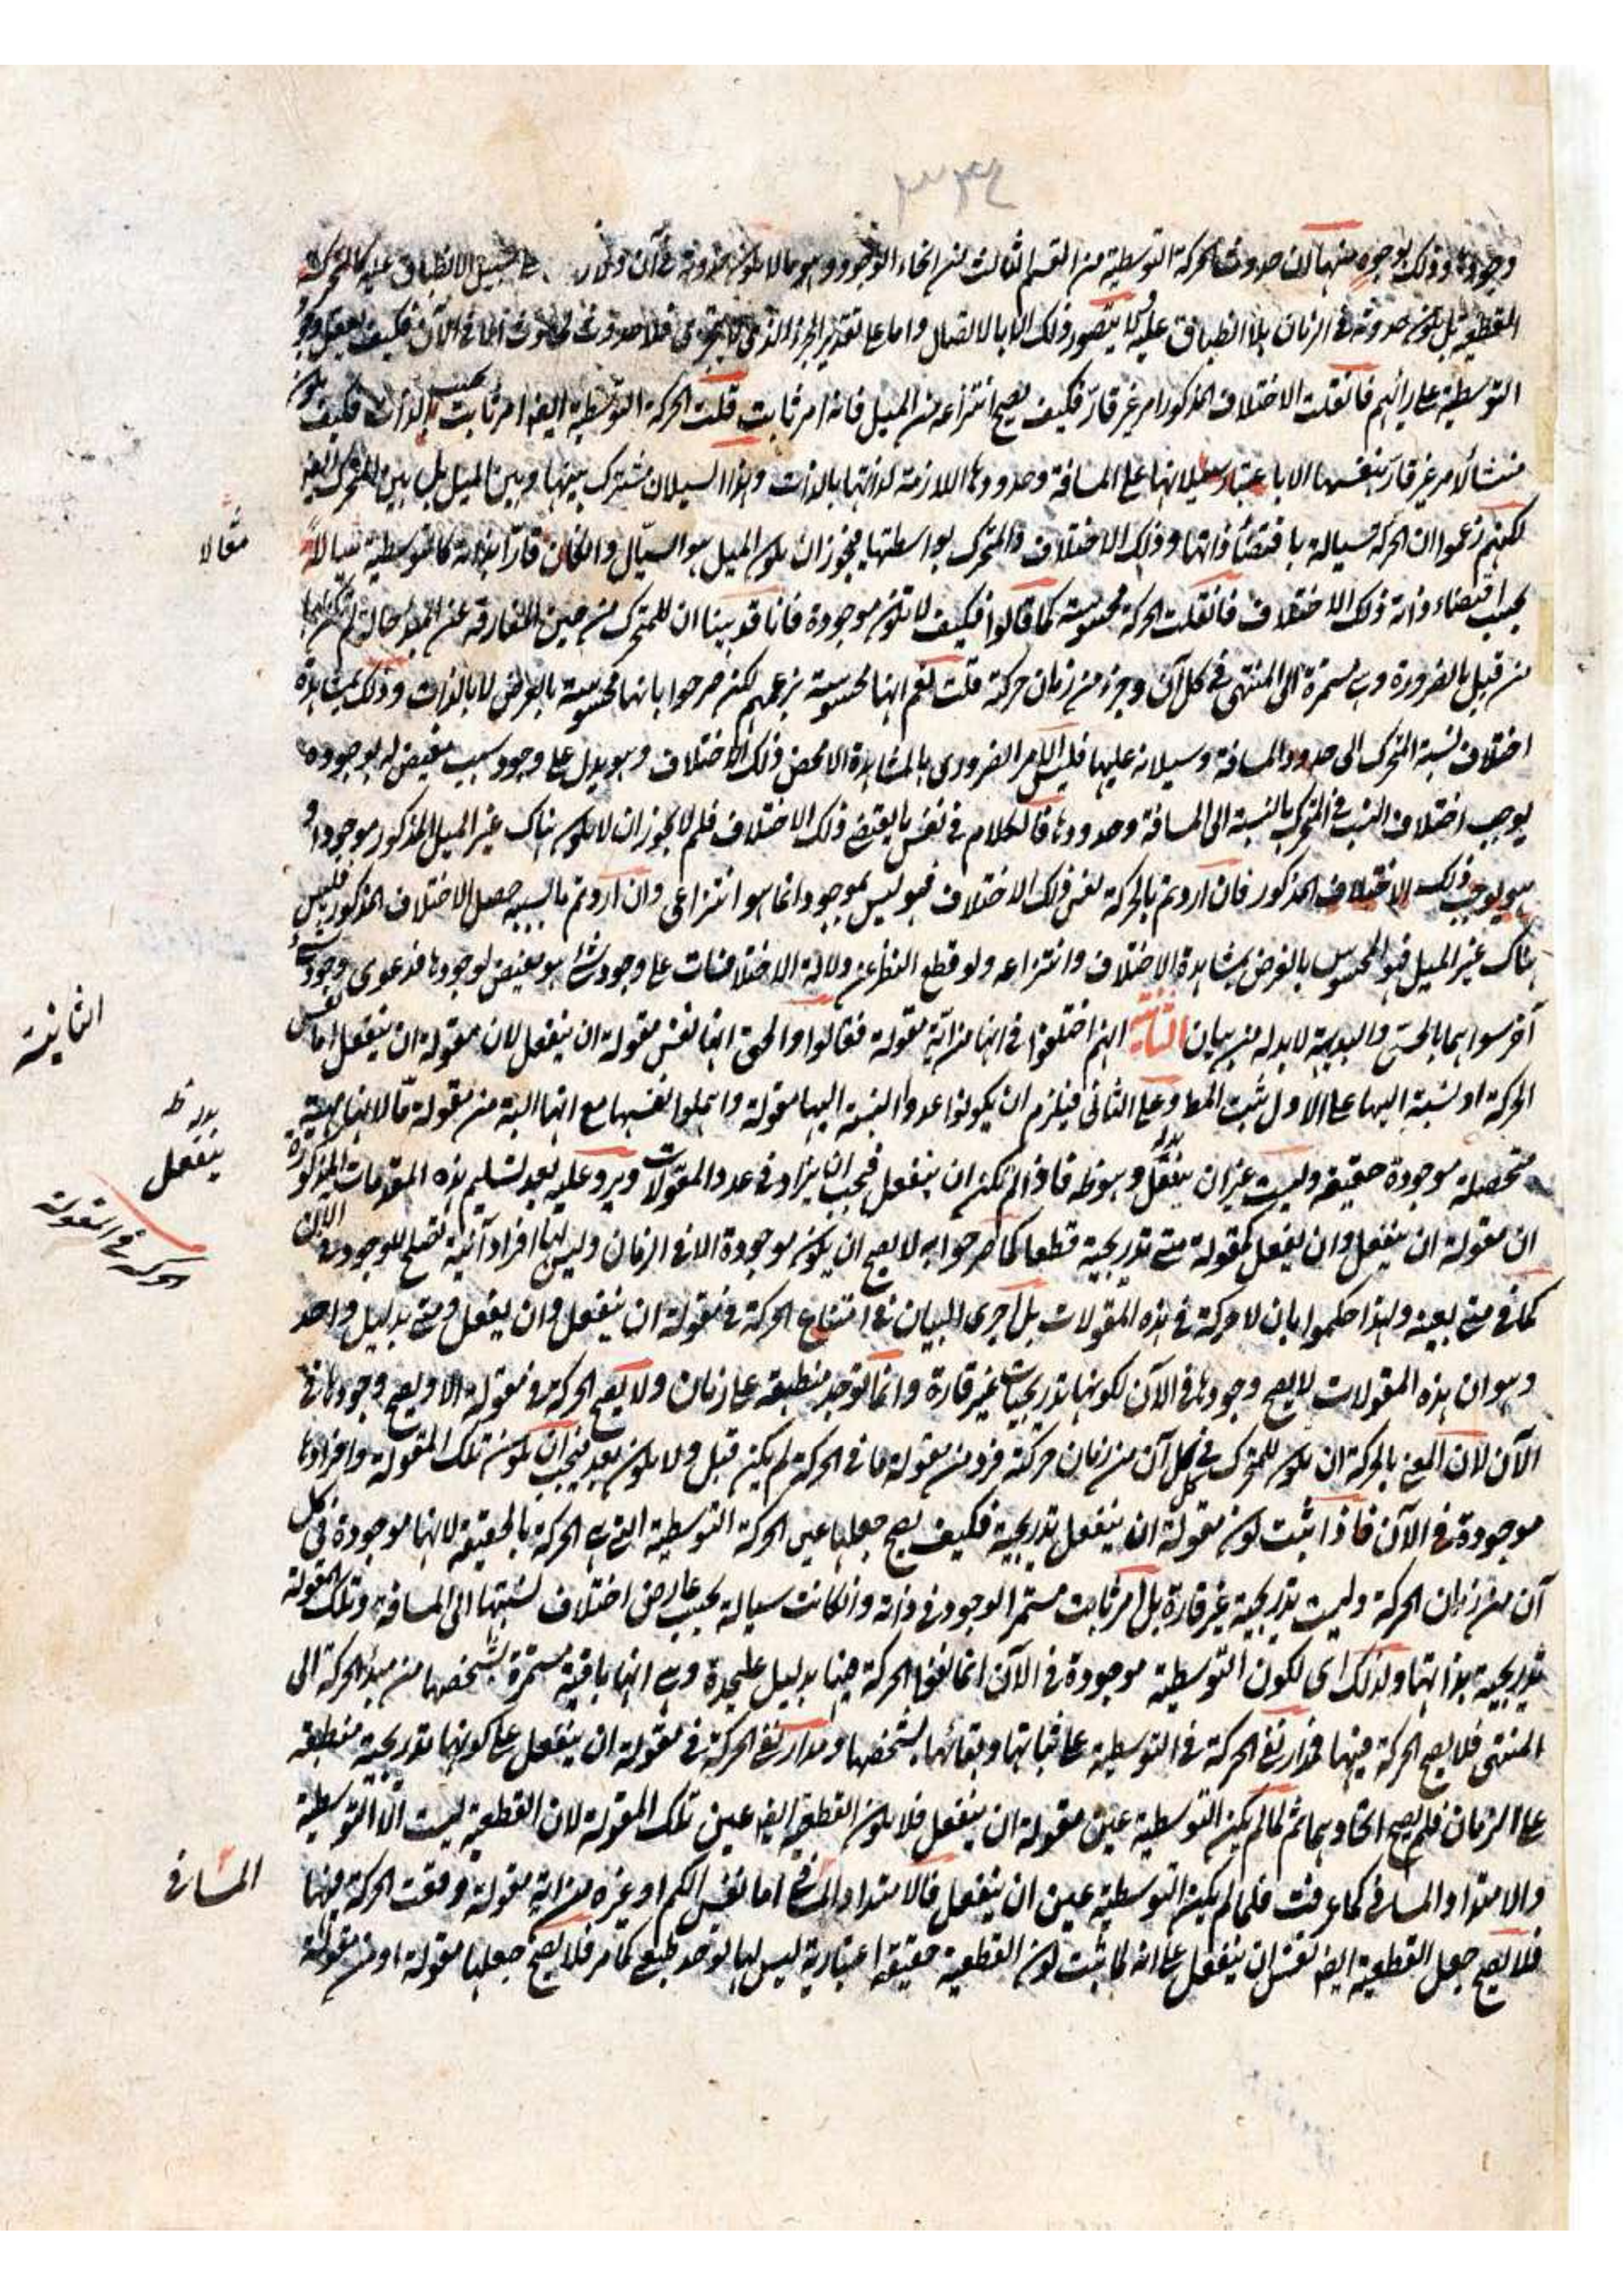 ٣٣٤
وجودها وذلك بوجوه منها ان حدوث الحركة التوسطية من القسم الثالث من انحاء الوجود وهو ما لا يكون حدوثه فى آن ولا سبيل الانطباق عليه كالحركة
القطعية بل يكون حدوثه فى الزمان بلا انطباق عليه ولا يتصور ذلك الا بالاتصال واما على تقدير الجزء الذى لا يتجزى فلا حدوث الا فى الآن فكيف يعقل وجود
التوسطية على رائهم فان قلت الاختلاف المذكور امر غير قار فكيف يصح انتزاعه من الميل فانه امر ثابت قلت الحركة التوسطية ايضا امر ثابت بحسب الذات فكيف يكون
منشأ لامر غير قار بنفسها الا باعتبار سيلانها على المسافة وحدودها اللازمة لذاتها بالذات وهذا السيلان مشترك بينها وبين الميل بل بين المتحرك ايضا
لكنهم زعموا ان الحركة سيالة باقتضاء ذاتها وذلك الاختلاف والمتحرك بواسطتها فيجوز ان يكون الميل هو السيال وان كان قارا بذاته كالتوسطية سيالا
مثالا
بحسب اقتضاء ذاته ذلك الاختلاف فان قلت الحركة محسوسة كما قالوا فكيف لا تكون موجودة فانا قد بينا ان للمتحرك من حين المفارقة عن المبدأ حالة لم تكن لها
من قبل بالضرورة وهى مستمرة الى المنتهى فى كل آن وجزء من زمان حركة قلت نعم انها محسوسة بزعمهم لكن صرحوا بانها محسوسة بالعرض لا بالذات وذلك بمشاهدة
اختلاف نسبة المتحرك الى حدود المسافة وسيلانه عليها فليس الامر الضرورى بالمشاهدة الا محض ذلك الاختلاف وهو يدل على وجود سبب مفيض له بوجوده
يوجب اختلاف النسب فى المتحرك بالنسبة الى المسافة وحدودها فالكلام فى نفس ما يقتضى ذلك الاختلاف فلم لا يجوز ان لا يكون هناك غير الميل المذكور موجودا و
هو يوجب ذلك الاختلاف المذكور فان اردتم بالحركة نفس ذلك الاختلاف فهو ليس بموجود انما هو انتزاعى وان اردتم ما بسببه حصل الاختلاف المذكور فليس
هناك غير الميل فهو المحسوس بالعرض بمشاهدة الاختلاف وانتزاعه ولو قطع النظر عن دلالة الاختلافات على وجود شئ هو مفيض لوجودها فدعوى وجود شئ
آخر سواهما بالحس والبديهة لا بد له من بيان الثانية انهم اختلفوا فى انها من اية مقولة فقالوا والحق انها نفس مقولة ان ينفعل لان مقولة ان ينفعل اما نفس
الثانية
الحركة او نسبة اليها على الاول ثبت المط وعلى الثانى فيلزم ان يكونوا عدوا النسبة اليها مقولة واهملوا نفسها مع انها البتة من مقولة ما لانها مهية
متحصلة موجودة حقيقة وليست غير ان ينفعل وهو ظ فاذا لم تكن ان ينفعل فيجب ان يزاد فى عدد المقولات ويرد عليه بعد تسليم هذه المقدمات المذكورة
بدله ظ
ينفعل
ان مقولة ان ينفعل وان يفعل كمقولة متى تدريجية قطعا كما صرحوا به لا يصح ان يكون موجودة الا فى الزمان وليس لها افراد آنية تصلح للوجود فى الآن
الحركة فى المقولة
كما فى متى بعينه ولهذا حكموا بان لا حركة فى هذه المقولات بل اجرى البيان فى امتناع الحركة فى مقولة ان ينفعل وان يفعل ومتى بدليل واحد
وهو ان هذه المقولات لا يصح وجودها فى الآن لكونها تدريجيات غير قارة وانما توجد منطبقة على زمان ولا يصح الحركة فى مقولة الا ويصح وجودها فى
الآن لان المعنى بالحركة ان يكون للمتحرك فى كل آن من زمان حركته فرد من مقولة ما فى الحركة لم يكن قبل ولا يكون بعد فيجب ان يكون تلك المقولة وافرادها
موجودة فى الآن فاذا ثبت كون مقولة ان ينفعل تدريجية فكيف يصح جعلها عين الحركة التوسطية التى هى الحركة بالحقيقة لانها موجودة فى كل
آن من زمان الحركة وليست تدريجية غير قارة بل امر ثابت مستمر الوجود فى ذاته وان كانت سيالة بحسب عارض اختلاف نسبتها الى المسافة وتلك المقولة
تدريجية بذاتها ولذلك اى لكون التوسطية موجودة فى الآن انما نفوا الحركة فيها بدليل عليحدة وهى انها باقية مستمرة بشخصها من مبدأ الحركة الى
المنتهى فلا يصح الحركة فيها فمدار نفى الحركة فى التوسطية على ثباتها وبقائها بشخصها ومدار نفى الحركة فى مقولة ان ينفعل على كونها تدريجية منطبقة
على الزمان فلم يصح اتحادهما ثم لما لم يكن التوسطية عين مقولة ان ينفعل فلا يكون القطعية ايضا عين تلك المقولة لان القطعية ليست الا التوسطية
والامتداد المسافى كما عرفت فلما لم يكن التوسطية عين ان ينفعل فالامتداد المسافى اما نفس الكم او غيره من اية مقولة وقعت الحركة فيها
المسافى
فلا يصح جعل القطعية ايضا نفس ان ينفعل على انه لما ثبت كون القطعية حقيقة اعتبارية ليس لها توحد طبعى كما مر فلا يصح جعلها مقولة او من مقولة